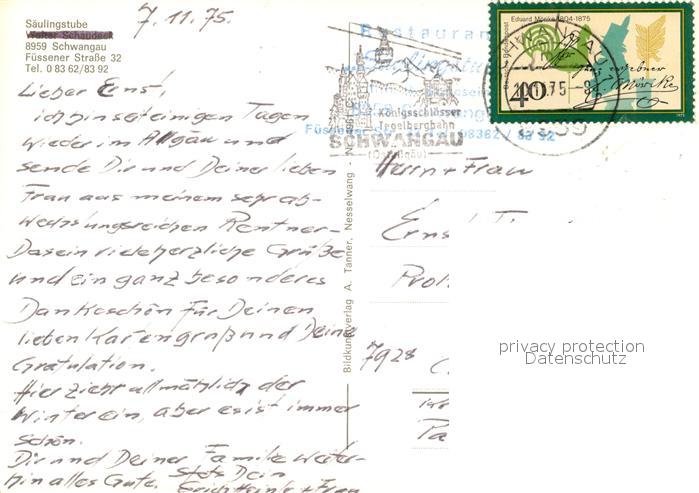 7.11.75.
Säulingstube
Walter Schaudeck
8959 Schwangau
Füssener Straße 32
Tel. 0 83 62/83 92
Lieber Ernst,
ich bin seit einigen Tagen
wieder im Allgäu und
sende Dir und Deiner lieben
Frau aus meinem sehr ab-
wechslungsreichen Rentner-
Dasein viele herzliche Grüße
und ein ganz besonderes
Dankeschön für Deinen
lieben Kartengruß und Deine
Gratulation.
Hier zieht allmählich der
Winter ein, aber es ist immer
schön.
Dir und Deiner Familie weiter-
hin alles Gute. Stets Dein
Erich + Frau
Bildkunstverlag A. Tanner, Nesselwang
Restauran
Königsschlösser
Tegelbergbahn
SCHWANGAU
(Ostallgäu)
08362 / 83 92
Eduard Mörike 1804-1875
40
Herrn + Frau
Erns
7928
privacy protection
Datenschutz